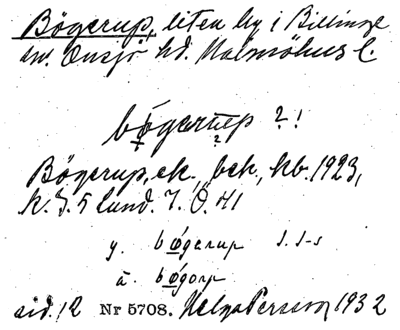 Bögerup, liten by i Billinge
sn. Onsjö hd. Malmöhus l
bögerup ?!
Bögerup, ek., bek., kb. 1923,
k. J. 5 Lund. J. Ö. 41
y. bögerup J. J-s
ä. bögorp
sid. 12 Nr 5708. Helga Persson 1932